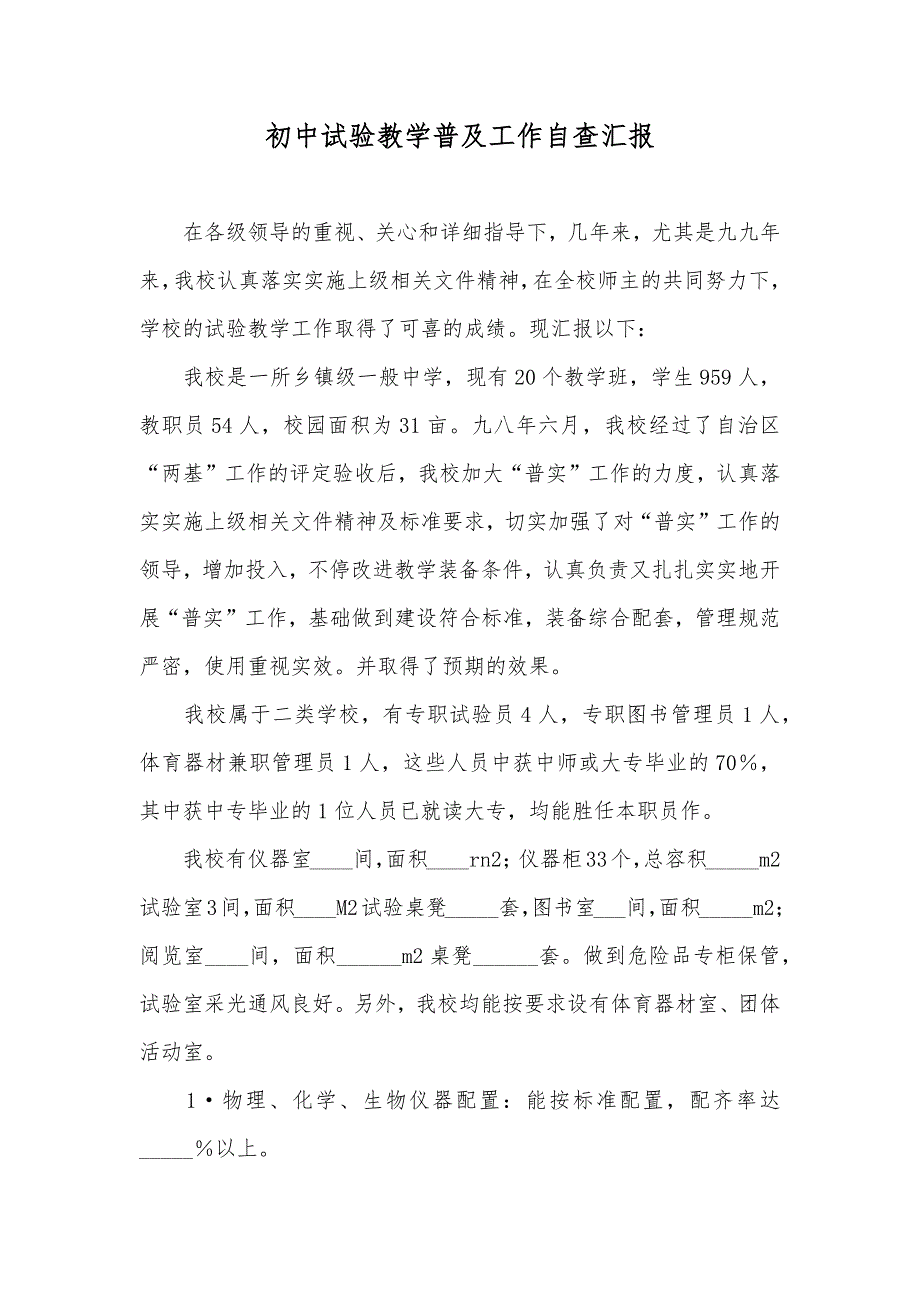 初中试验教学普及工作自查汇报
在各级领导的重视、关心和详细指导下，几年来，尤其是九九年
来，我校认真落实实施上级相关文件精神，在全校师主的共同努力下，
学校的试验教学工作取得了可喜的成绩。现汇报以下：
我校是一所乡镇级一般中学，现有 20 个教学班，学生 959 人，
教职员 54 人，校园面积为 31 亩。九八年六月，我校经过了自治区
“两基”工作的评定验收后，我校加大“普实”工作的力度，认真落
实实施上级相关文件精神及标准要求，切实加强了对“普实”工作的
领导，增加投入，不停改进教学装备条件，认真负责又扎扎实实地开
展“普实”工作，基础做到建设符合标准，装备综合配套，管理规范
严密，使用重视实效。并取得了预期的效果。
我校属于二类学校，有专职试验员 4 人，专职图书管理员 1 人，
体育器材兼职管理员 1 人，这些人员中获中师或大专毕业的 70％，
其中获中专毕业的 1 位人员已就读大专，均能胜任本职员作。
我校有仪器室____间，面积____rn2；仪器柜 33 个，总容积_____m2
试验室 3 间，面积____M2 试验桌凳_____套，图书室___间，面积_____m2；
阅览室____间，面积______m2 桌凳______套。做到危险品专柜保管，
试验室采光通风良好。另外，我校均能按要求设有体育器材室、团体
活动室。
1·物理、化学、生物仪器配置：能按标准配置，配齐率达
_____％以上。